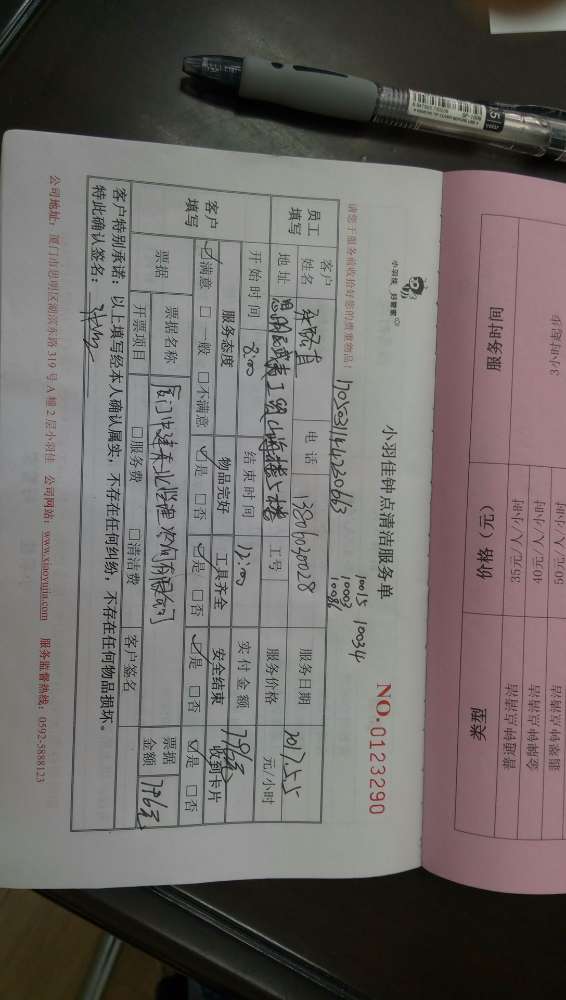 小羽佳 好管家
小羽佳钟点清洁服务单
NO.0123290
10015 10034
10003
10086
请您于服务前收拾好您的贵重物品!
员工填写
客户姓名
电话
13806030028
服务日期
2017.5.5
地址
工号
服务价格
元/小时
开始时间
8:00
结束时间
12:00
实付金额
796元
客户填写
服务态度
物品完好
工具齐全
安全结束
收到卡片
☑满意 □一般 □不满意
☑是 □否
☑是 □否
☑是 □否
☑是 □否
票据
票据名称
票据金额
796元
开票项目
□服务费 □清洁费
客户签名
客户特别承诺:以上填写经本人确认属实,不存在任何纠纷,不存在任何物品损坏。
特此确认签名:
公司地址:厦门市思明区湖滨东路 319 号 A 幢 2 层小羽佳 公司网站:www.xiaoyujia.com 服务监督热线:0592-5888123
服务时间
价格(元)
类型
3小时起步
35元/人/小时
普通钟点清洁
40元/人/小时
金牌钟点清洁
50元/人/小时